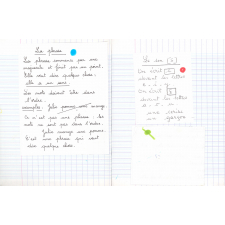 La phrase
La phrase commence par une
majuscule et finit par un point.
Elle veut dire quelque chose :
elle a un sens
Les mots doivent être dans
l'ordre.
exemple : Julie pomme une mange
Ce n'est pas une phrase : les
mots ne sont pas dans l'ordre.
Julie mange une pomme.
C'est une phrase qui veut
dire quelque chose.
Le son
On écrit
devant les lettres
On écrit
devant les lettres
une cerise